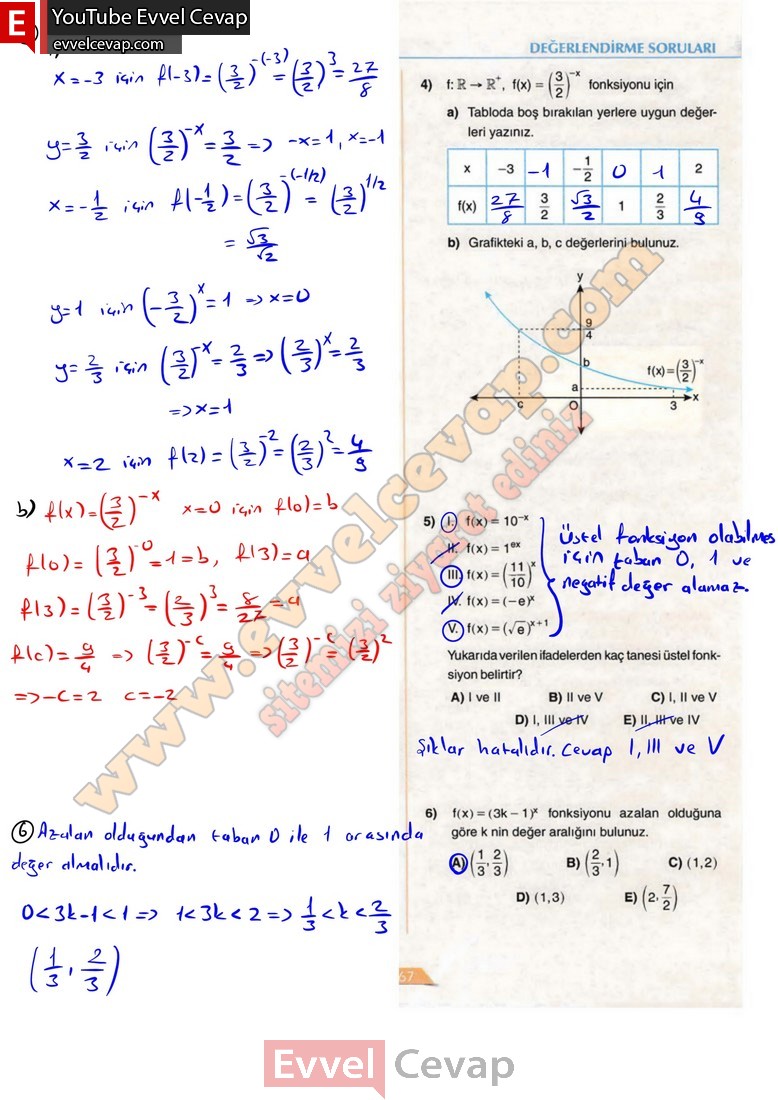 YouTube Evvel Cevap
evvelcevap.com
x=-3 için f(-3)=(3/2)^-(-3)=(3/2)^3=27/8
y=3/2 için (3/2)^-x=3/2 => -x=1, x=-1
x=-1/2 için f(-1/2)=(3/2)^-(-1/2)=(3/2)^1/2
=√3/√2
y=1 için (-3/2)^x=1 => x=0
y=2/3 için (3/2)^-x=2/3 => (2/3)^x=2/3
=> x=1
x=2 için f(2)=(3/2)^-2=(2/3)^2=4/9
b) f(x)=(3/2)^-x x=0 için f(0)=b
f(0)=(3/2)^-0=1=b, f(3)=a
f(3)=(3/2)^-3=(2/3)^3=8/27=a
f(c)=9/4 => (3/2)^-c=9/4 => (3/2)^-c=(3/2)^2
=> -c=2 c=-2
6 Azalan olduğundan taban 0 ile 1 arasında
değer almalıdır.
0<3k-1<1 => 1<3k<2 => 1/3<k<2/3
(1/3, 2/3)
DEĞERLENDİRME SORULARI
4) f: ℝ → ℝ⁺, f(x) = (3/2)^-x fonksiyonu için
a) Tabloda boş bırakılan yerlere uygun değer-
leri yazınız.
x -3 -1 -1/2 0 1 2
f(x) 27/8 3/2 √3/2 1 2/3 4/9
b) Grafikteki a, b, c değerlerini bulunuz.
y
9/4
b
f(x)=(3/2)^-x
a
c O 3 x
5) I. f(x) = 10^-x
II. f(x) = 1^ex
III. f(x) = (11/10)^x
IV. f(x) = (-e)^x
V. f(x) = (√e)^x+1
Üstel fonksiyon olabilmes
için taban 0, 1 ve
negatif değer alamaz.
Yukarıda verilen ifadelerden kaç tanesi üstel fonk-
siyon belirtir?
A) I ve II B) II ve V C) I, II ve V
D) I, III ve IV E) II, III ve IV
Şıklar hatalıdır. Cevap I, III ve V
6) f(x) = (3k – 1)^x fonksiyonu azalan olduğuna
göre k nin değer aralığını bulunuz.
A) (1/3, 2/3) B) (2/3, 1) C) (1,2)
D) (1,3) E) (2, 7/2)
67
www.evvelcevap.com
sitemizi ziyaret ediniz
Evvel Cevap